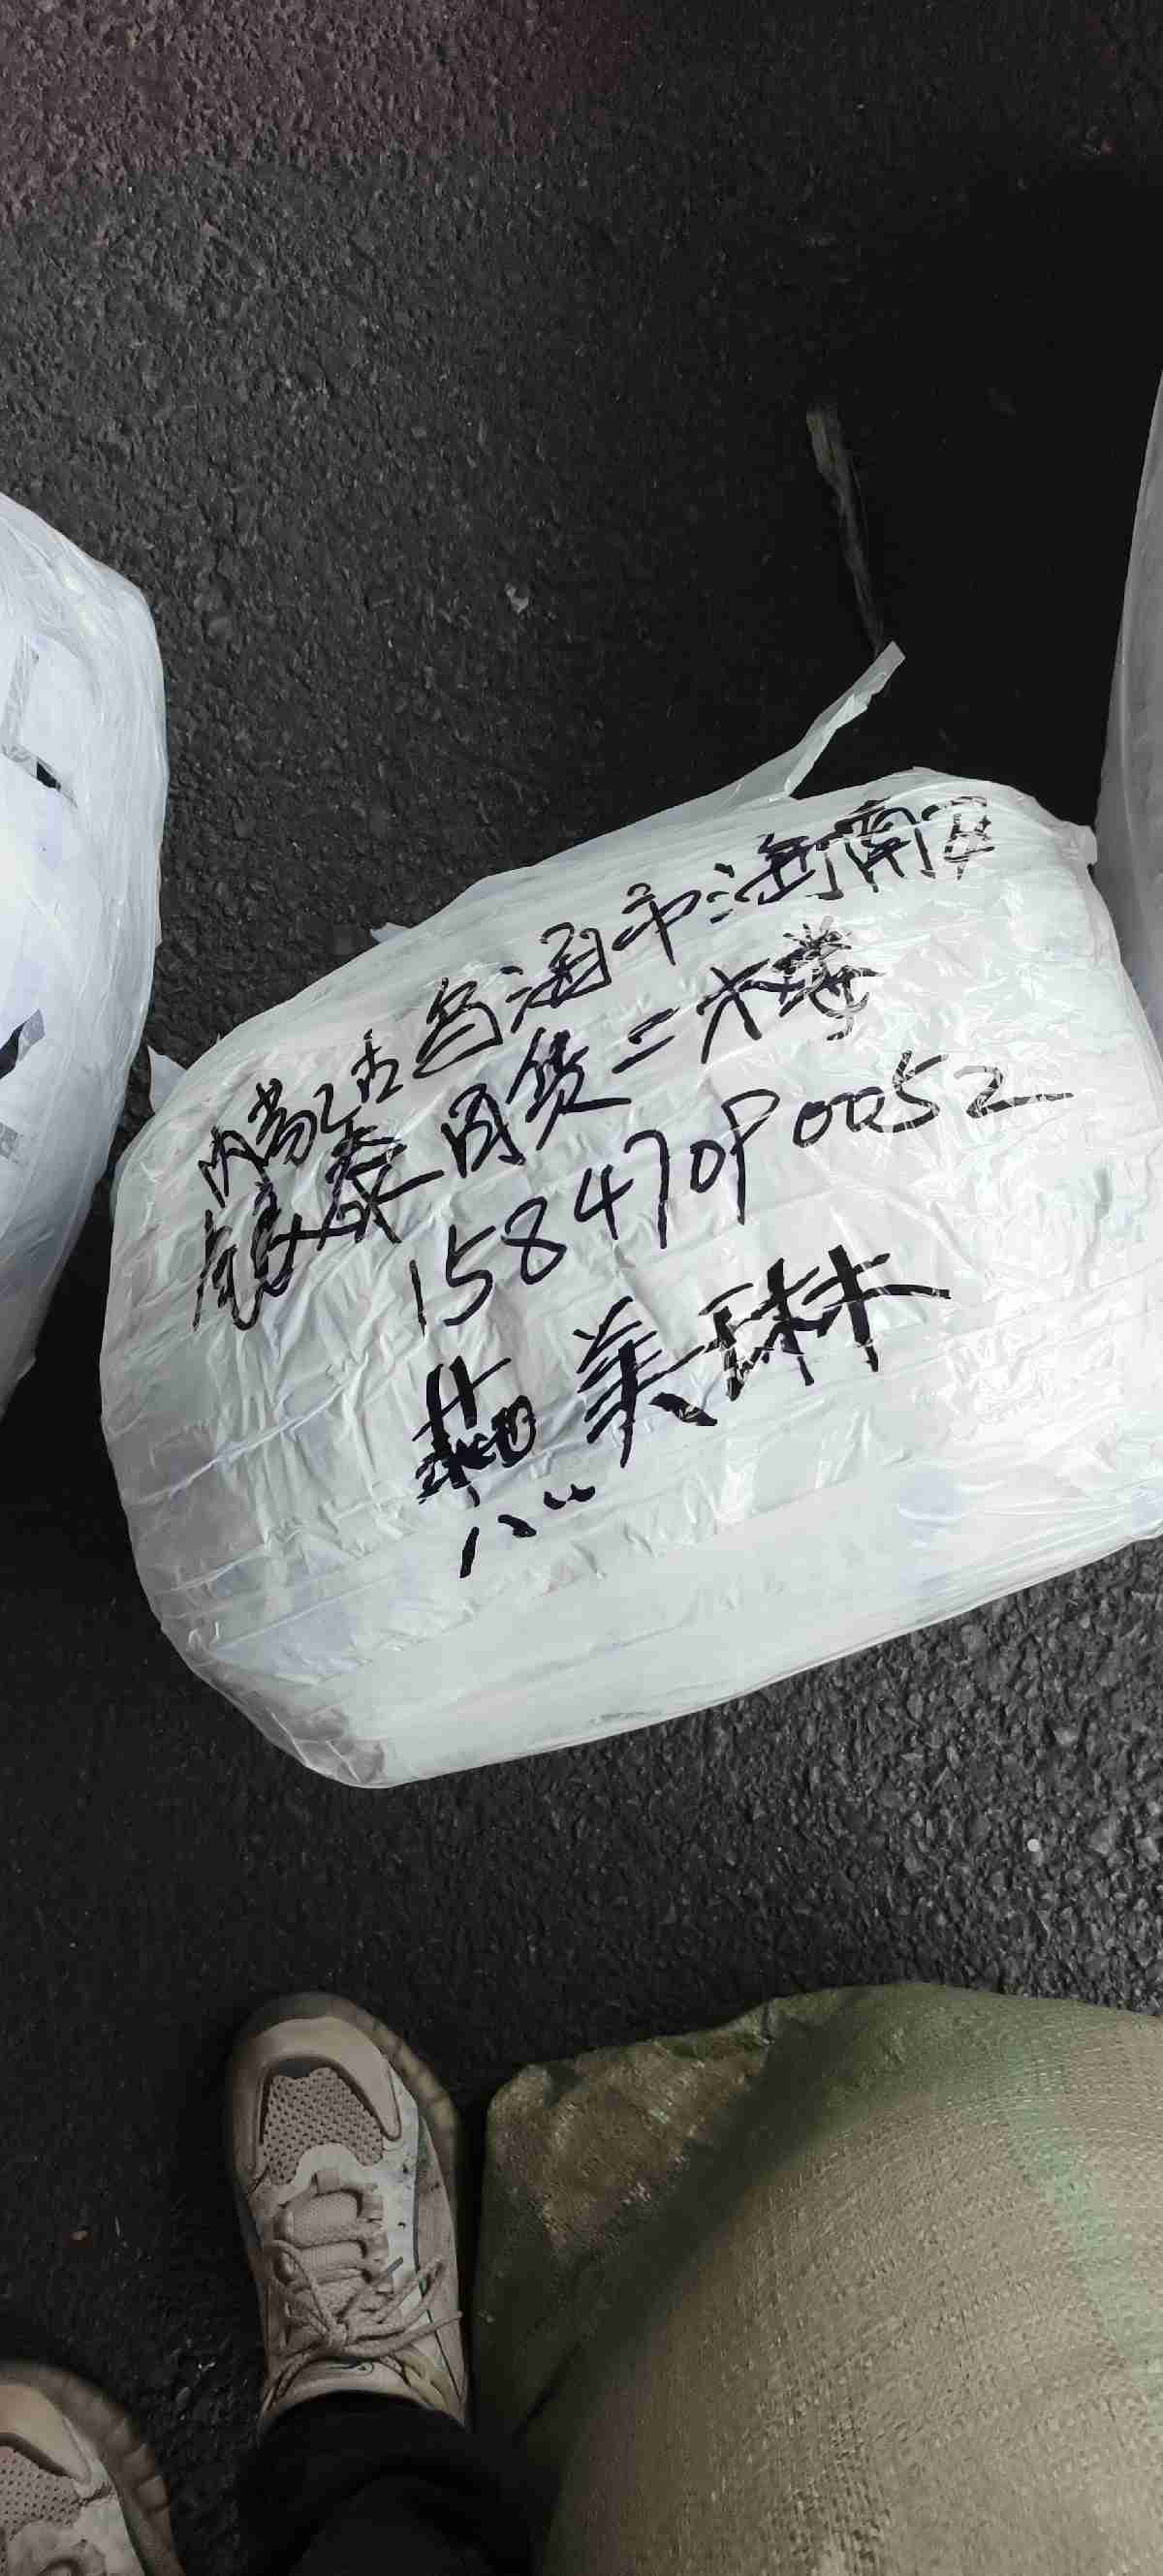 内蒙古乌海市海南区
泰百货二楼
15847090052
燕美琳